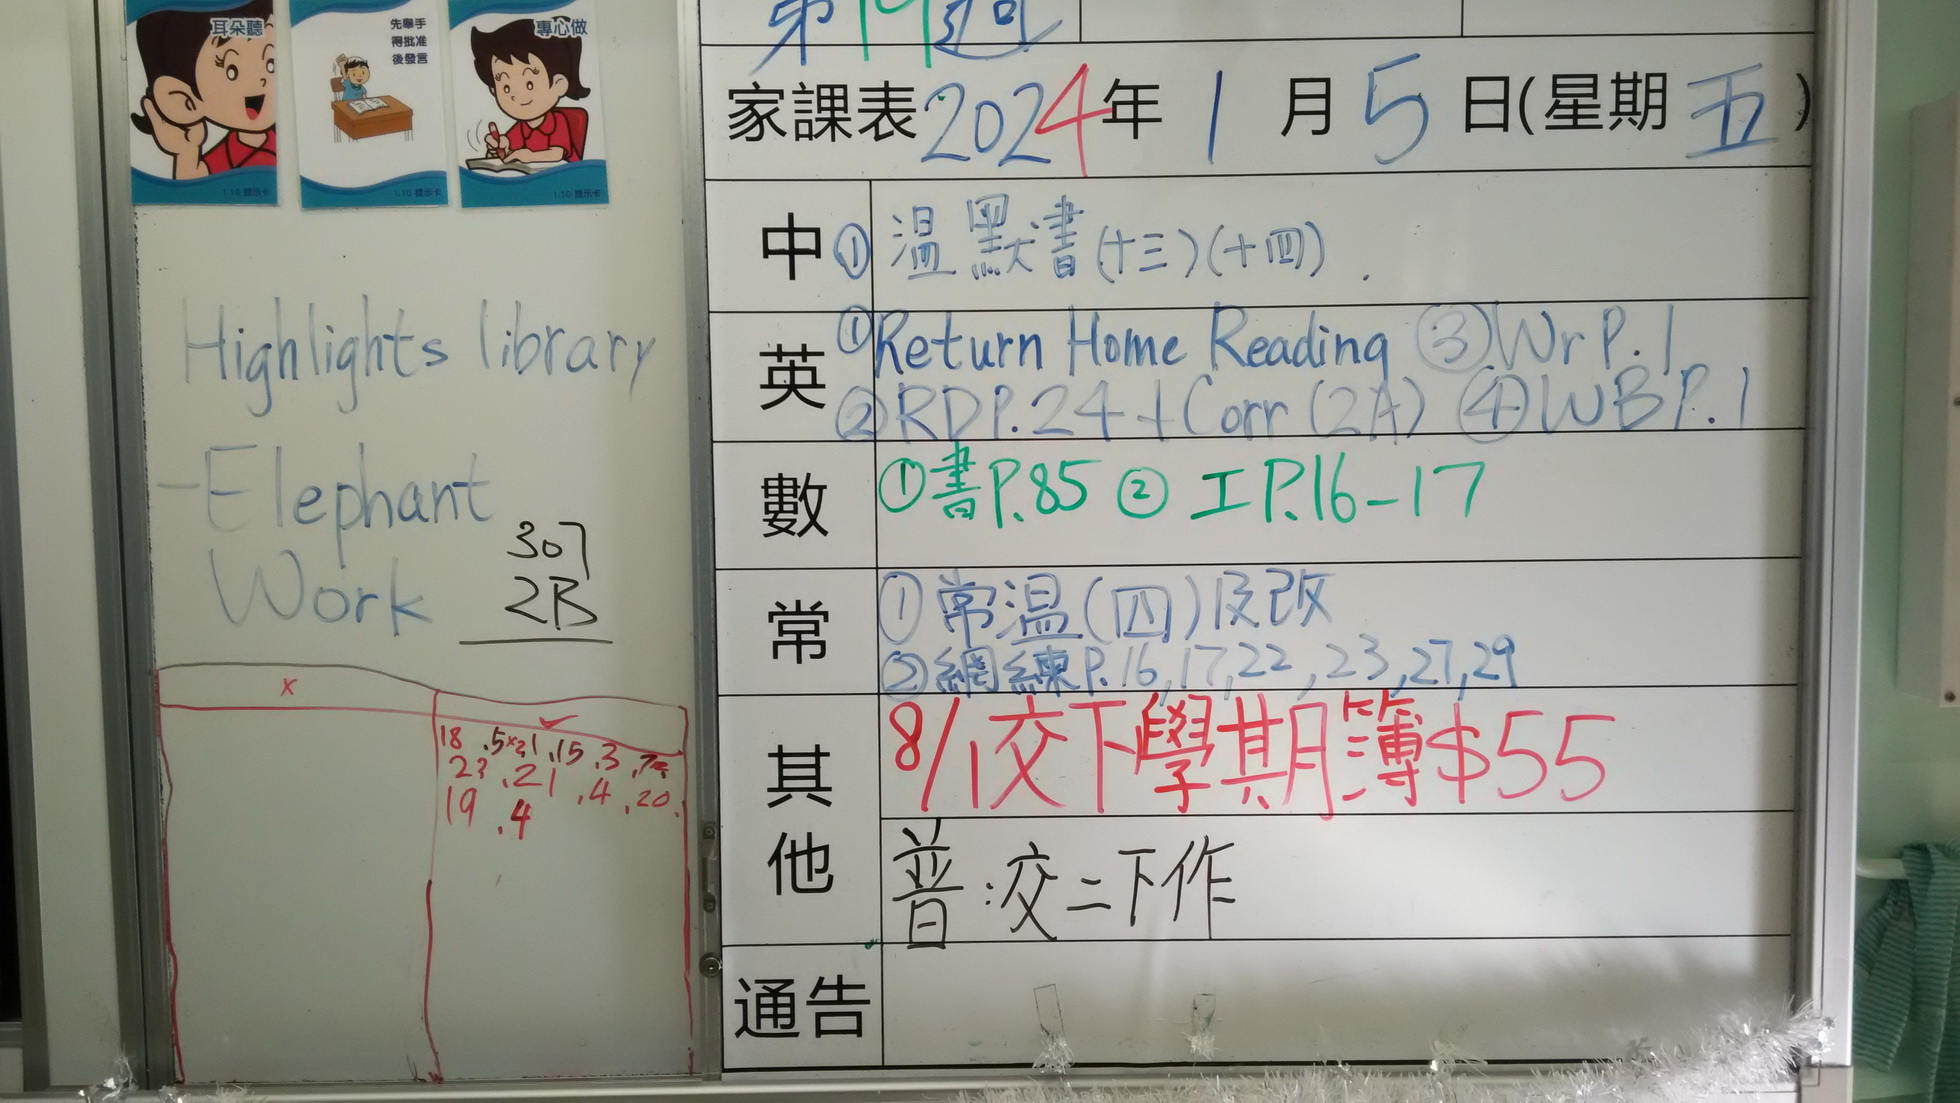 耳朵聽
先舉手
得批准
後發言
專心做
1.10 提示卡
1.10 提示卡
1.10 提示卡
Highlights library
-Elephant
Work
307
2B
x ✓
18 .5 .15 .3
.21
19 .4 .4 .20
第19週
家課表2024年1月5日(星期五)
中 ① 溫默書(十三)(十四).
英 ①Return Home Reading ③Wr P.1
②RD P.24 + Corr (2A) ④WB P.1
數 ①書P.85 ② 工P.16-17
常 ①常溫(四)及改
②網練P.16,17,22,23,27,29
其他 8/1交下學期簿$55
普:交二下作
通告